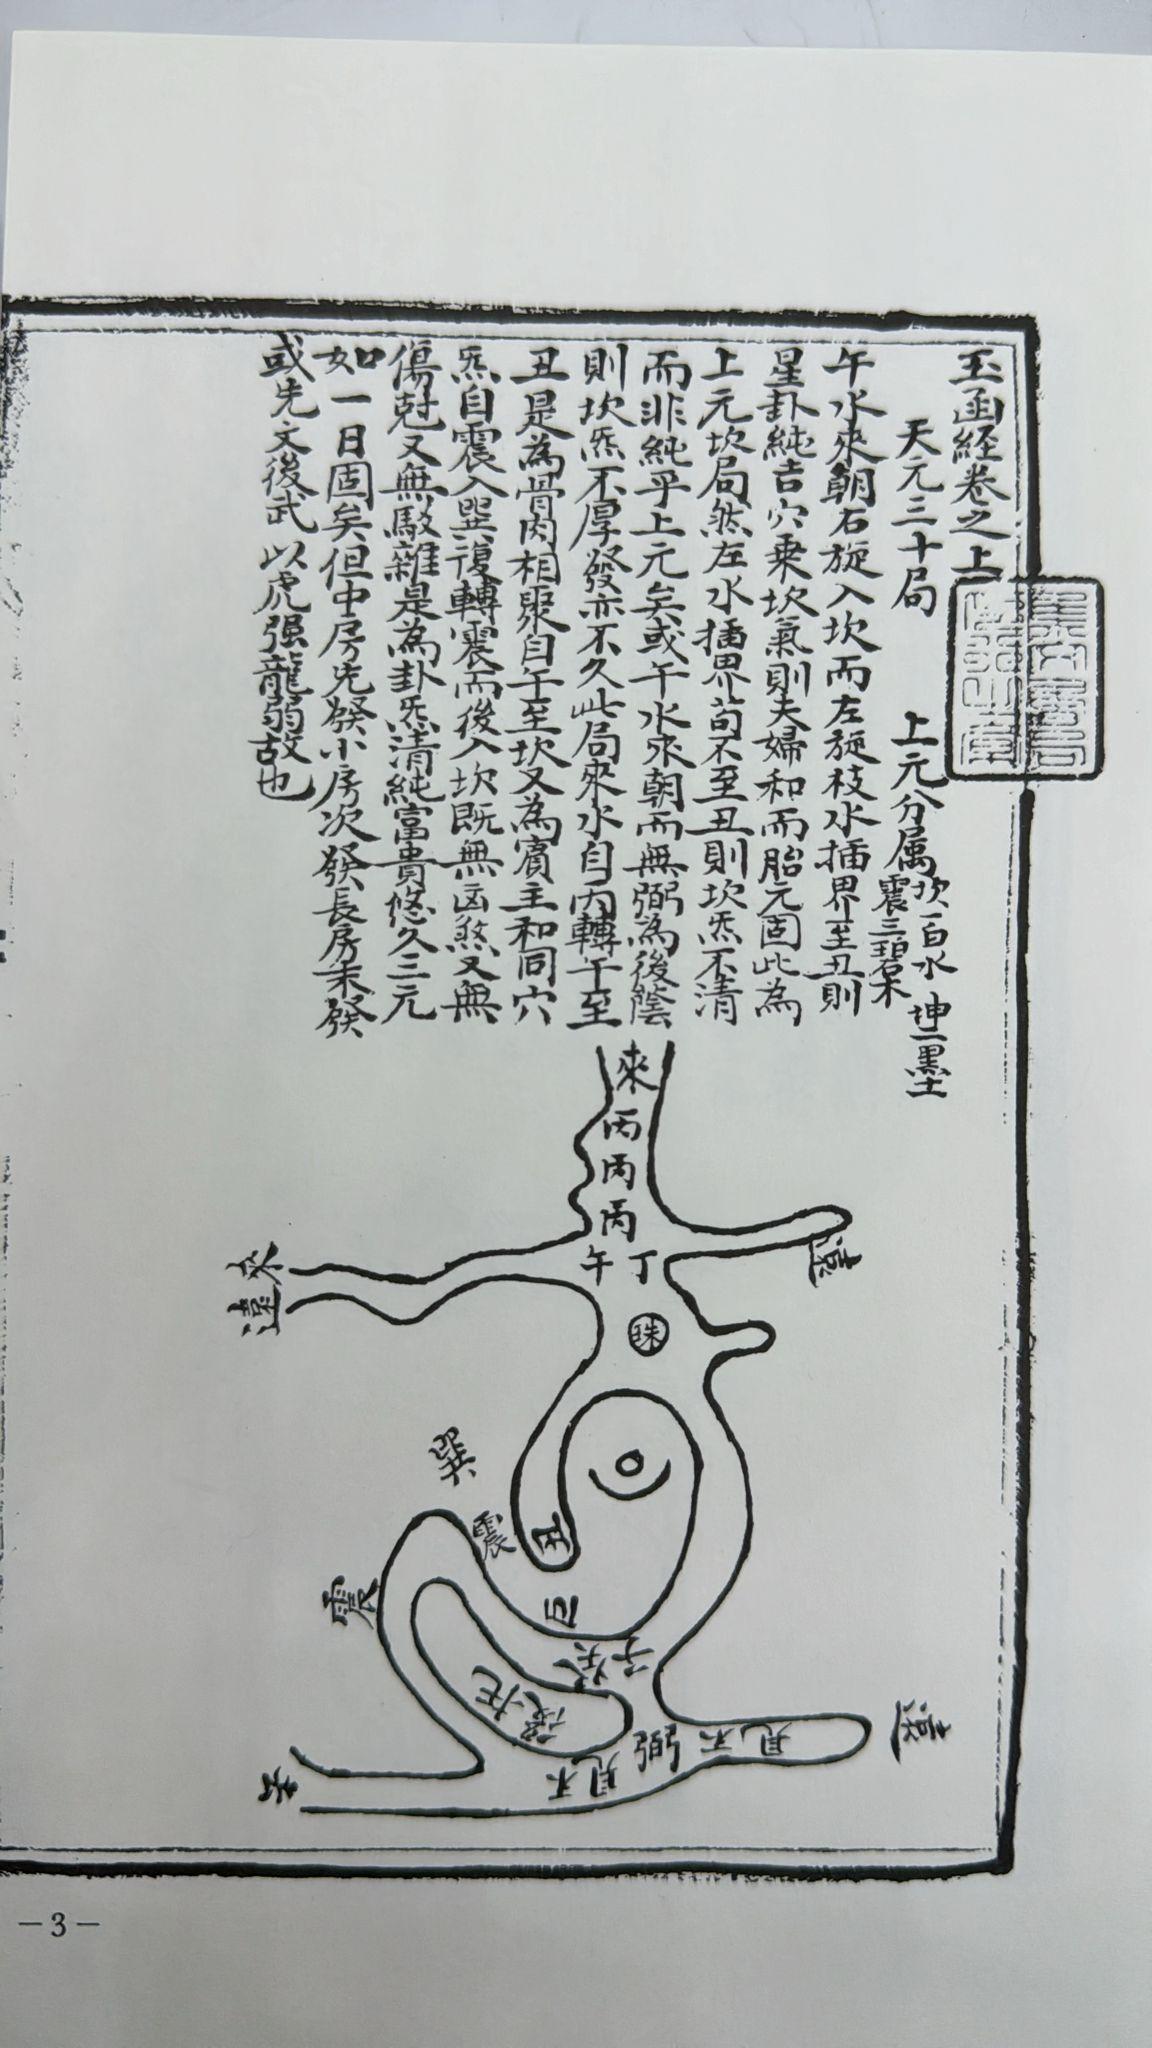 玉函経卷之上
天元三十局 上元分属 坎一白水 坤二黒土
震三碧木
午水來朝右旋入坎而左旋枝水插界至丑則
星卦純吉穴乗坎氣則夫婦和而胎元固此為
上元坎局然左水插界苟不至丑則坎炁不清
而非純乎上元矣或午水來朝而無弼為後蔭
則坎炁不厚發亦不久此局來水自丙轉午至
丑是為骨肉相聚自午至坎又為賓主和同穴
炁自震入巽復轉震而後入坎既無凶煞又無
傷尅又無駁雜是為卦炁清純富貴悠久三元
如一日固矣但中房先發小房次發長房末發
或先文後武以虎强龍弱故也
來
丙
丙
丙
午丁
遠
來
遠
珠
巽
震
丑
震
后
子
癸
後
托
遠
不見
弼
不見
去
－3－